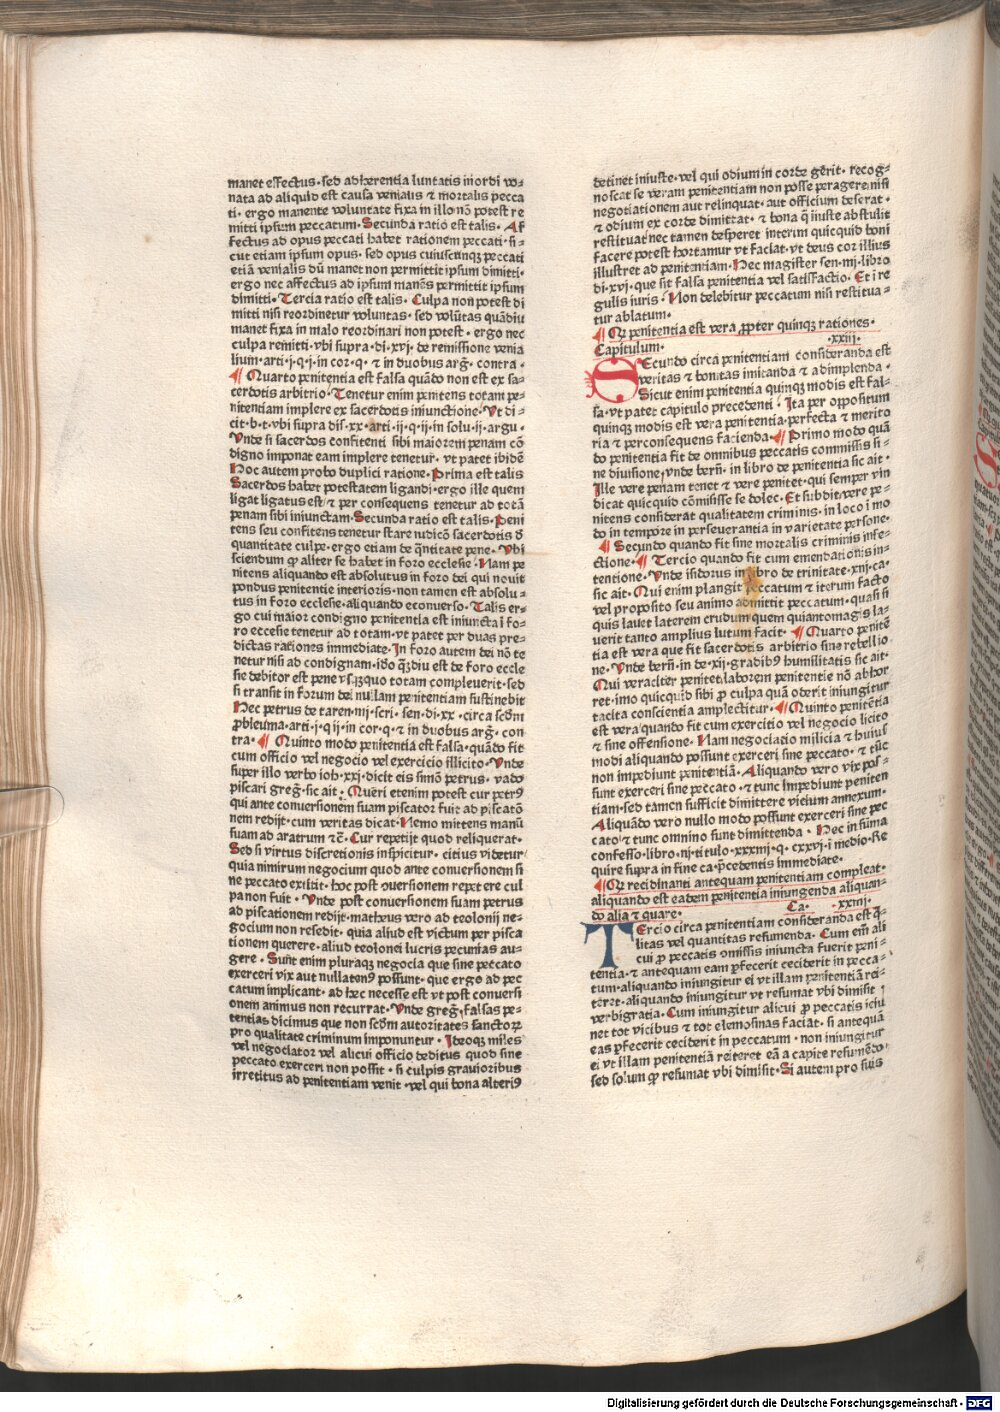 manet effectus·sed adherentia luntatis inordi vo⸗
nata ad aliquid est causa venialis ⁊ mortalis pecca
ti· ergo manente voluntate fixa in illo nō potest re
mitti ipsum peccatum·Secunda ratio est talis· Af
fectus ad opus peccati habet rationem peccati·si⸗
cut etiam ipsum opus· sed opus cuiuscūqꝫ peccati
etiā venialis dū manet non permittit ipsum dimitti·
ergo nec affectus ad ipsum manēs permittit ipsum
dimitti·Tercia ratio est talis· Culpa non potest di
mitti nisi reordinetur voluntas·sed volūtas quādiu
manet fixa in malo reordinari non potest·ergo nec
culpa remitti·vbi supra·di·xvj·de remissione venia
lium·arti·j·q·j·in cor·q·⁊ in duobus arg̃·contra·
¶ Quarto penitentia est falsa quādo non est ex sa⸗
cerdotis arbitrio·Tenetur enim penitens totam pe⸗
nitentiam implere ex sacerdotis iniunctione·Vt di⸗
cit·b·t·vbi supra dis·xx·arti·ij·q·ij·in solu·ij·argu·
Vnde si sacerdos confitenti sibi maiorem penam cō
digno imponat eam implere tenetur·vt patet ibidē
Hoc autem probo duplici ratione·Prima est talis
Sacerdos habet potestatem ligandi·ergo ille quem
ligat ligatus est/⁊ per consequens tenetur ad totā
penam sibi iniunctam·Secunda ratio est talis·Peni
tens seu confitens tenetur stare iudicō sacerdotis d̄
quantitate culpe·ergo etiam de q̄ntitate pene·Vbi
sciendum ꝙ aliter se habet in foro ecclesie·Nam pe
nitens aliquando est absolutus in foro dei qui novit
pondus penitentie interioris·non tamen est absolu⸗
tus in foro ecclesie·aliquando econuerso·Talis er⸗
go cui maior condigno penitentia est iniuncta ī fo⸗
ro eccesie tenetur ad totam·vt patet per duas pre⸗
dictas rationes immediate·In foro autem dei nō te
netur nisi ad condignam·ido q̄diu est de foro eccle
sie debitor est pene vsqꝫquo totam compleuerit·sed
si transit in forum dei nullam penitentiam sustinebit
Hec petrus de taren·iiij·scri·sen·di·xx·circa scd̄m
ꝓbleuma·arti·j·q ij·in cor·q·⁊ in duobus arg̃·con
tra·¶ Quinto modo penitentia est falsa·quādo fit
cum officio vel negocio vel exercicio illicito·Vnde
super illo verbo ioh·xxj·dicit eis simō petrus·vado
piscari greg̃·sic ait·Queri etenim potest cur petrꝰ
qui ante conuersionem suam piscator fuit ad piscatō
nem redijt·cum veritas dicat·Nemo mittens manū
suam ad aratrum ⁊c̄·Cur repetijt quod reliquerat·
Sed si virtus discretionis inspicitur·citius videtur
quia nimirum negocium quod ante conuersionem si
ne peccato exstitit·hoc post ↄuersionem repetere cul
pa non fuit·Vnde post conuersionem suam petrus
ad piscationem redijt·matheus vero ad teolonij ne⸗
gocium non resedit·quia aliud est victum per pisca
tionem querere·aliud teolonei lucris pecunias au⸗
gere·Sunt enim pleraqꝫ negocia que sine peccato
exerceri vix aut nullatenꝰ possunt·que ergo ad pec
catum implicant·ad hec necesse est vt post conuersi
onem animus non recurrat·Vnde greg̃·falsas pe⸗
tentias dicimus que non scd̄m autoritates sanctoꝝ
pro qualitate criminum imponuntur·Ideoqꝫ miles
vel negociator vel alicui officio deditus quod sine
peccato exerceri non possit·si culpis grauioribus
irretitus ad penitentiam venit·vel qui bona alteriꝰ
detinet iniuste·vel qui odium in corde gerit·recog⸗
noscat se veram penitentiam non posse peragere nisi
negotiationem aut relinquat·aut officium deserat·
⁊ odium ex corde dimittat·⁊ bona q̄ iniuste abstulit
restituat nec tamen desperet interim quicquid boni
facere potest hortamur vt faciat·vt deus cor illius
illustret ad penitentiam·Hec magister sen·iiij·libro
di·xvj·que sit falsa penitentia vel satisfactio·Et i re
gulis iuris·Non delebitur peccatum nisi restitua⸗
tur ablatum·
¶ Qꝫ penitentia est vera ꝓpter quinqꝫ rationes·
Capitulum· ·xxiij·
SEcundo circa penitentiam consideranda est
veritas ⁊ bonitas imitanda ⁊ adimplenda·
Sicut enim penitentia quinqꝫ modis est fal⸗
sa·vt patet capitulo precedenti·Ita per oppositum
quinqꝫ modis est vera penitentia·perfecta ⁊ merito
ria ⁊ perconsequens facienda·¶ Primo modo quā
do penitentia fit de omnibus peccatis commissis si⸗
ne diuisione·vnde bern̄·in libro de penitentia sic ait·
Ille vere penam tenet ⁊ vere penitet·qui semper vin
dicat quicquid cōmisisse se dolet·Et subdit·vere pe⸗
nitens considerat qualitatem criminis·in loco i mo
do in tempore in perseuerantia in varietate persone·
¶ Secundo quando fit sine mortalis criminis infe⸗
ctione·¶ Tercio quando fit cum emendationis in⸗
tentione·Vnde isidorus in libro de trinitate·xij·ca·
sic ait·Qui enim plangit peccatum ⁊ iterum facto
vel proposito seu animo admittit peccatum·quasi si
quis lauet laterem crudum quem quantomagis la⸗
uerit tanto amplius lutum facit·¶ Quarto penitē
tia est vera que fit sacerdotis arbitrio sine rebellio
ne·Vnde bern̄·in de·xij·gradibꝰ humilitatis sic ait·
Qui veraciter penitet/laborem penitentie nō abhor
ret·imo quicquid sibi ꝓ culpa quā oderit iniungitur
tacita conscientia amplectitur·¶ Quinto penitētia
est vera quando fit cum exercitio vel negocio licito
⁊ sine offensione·Nam negociatio milicia ⁊ huius
modi aliquando possunt exerceri sine peccato·⁊ tūc
non impediunt penitentiā·Aliquando vero vix pos⸗
sunt exerceri sine peccato·⁊ tunc impediunt peniten
tiam·sed tamen sufficit dimittere vicium annexum·
Aliquādo vero nullo modo possunt exerceri sine pec
cato/⁊ tunc omnino sunt dimittenda·Hec in suma
confesso·libro·iij·titulo·xxxiiij·q·cxxvj·i medio·Re
quire supra in fine ca·p̄cedentis immediate·
¶ Qꝫ recidiuanti antequam penitentiam compleat·
aliquando est eadem penitentia iniungenda aliquan⸗
do alia ⁊ quare· Ca· ·xxiiij·
TErcio circa penitentiam consideranda est q̄⸗
litas vel quantitas resumenda·Cum em̄ ali
cui ꝓ peccatis ↄmissis iniuncta fuerit peni⸗
tentia·⁊ antequam eam ꝑfecerit ceciderit in pecca⸗
tum·aliquando iniungitur ei vt illam penitentiā rei⸗
teret·aliquando iniungitur vt resumat vbi dimisit
verbigratia·Cum iniungitur alicui ꝓ peccatis ieiu
net tot vicibus ⁊ tot elemosinas faciat·si antequā
eas ꝑfecerit ceciderit in peccatum·non iniungitur
ei vt illam penitentiā reiteret eā a capite resumēdo·
sed solum ꝙ resumat vbi dimisit·Si autem pro suis
Digitalisierung gefördert durch die Deutsche Forschungsgemeinschaft · DFG